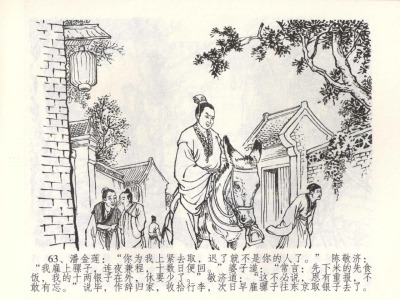 63. 潘金莲：“你为我上紧去取，迟了就不是你的人了。”陈敬济：
“我雇上骡子，连夜兼程，十数日便回。”婆子道：“常言：先下米的先食
饭，我的十两银子在外，休要少了我的。”敬济道：“这不必说，恩有重报，不
敢有忘。”说毕，作辞归家，收拾行李，次日早雇骡子往东京取银子去了。